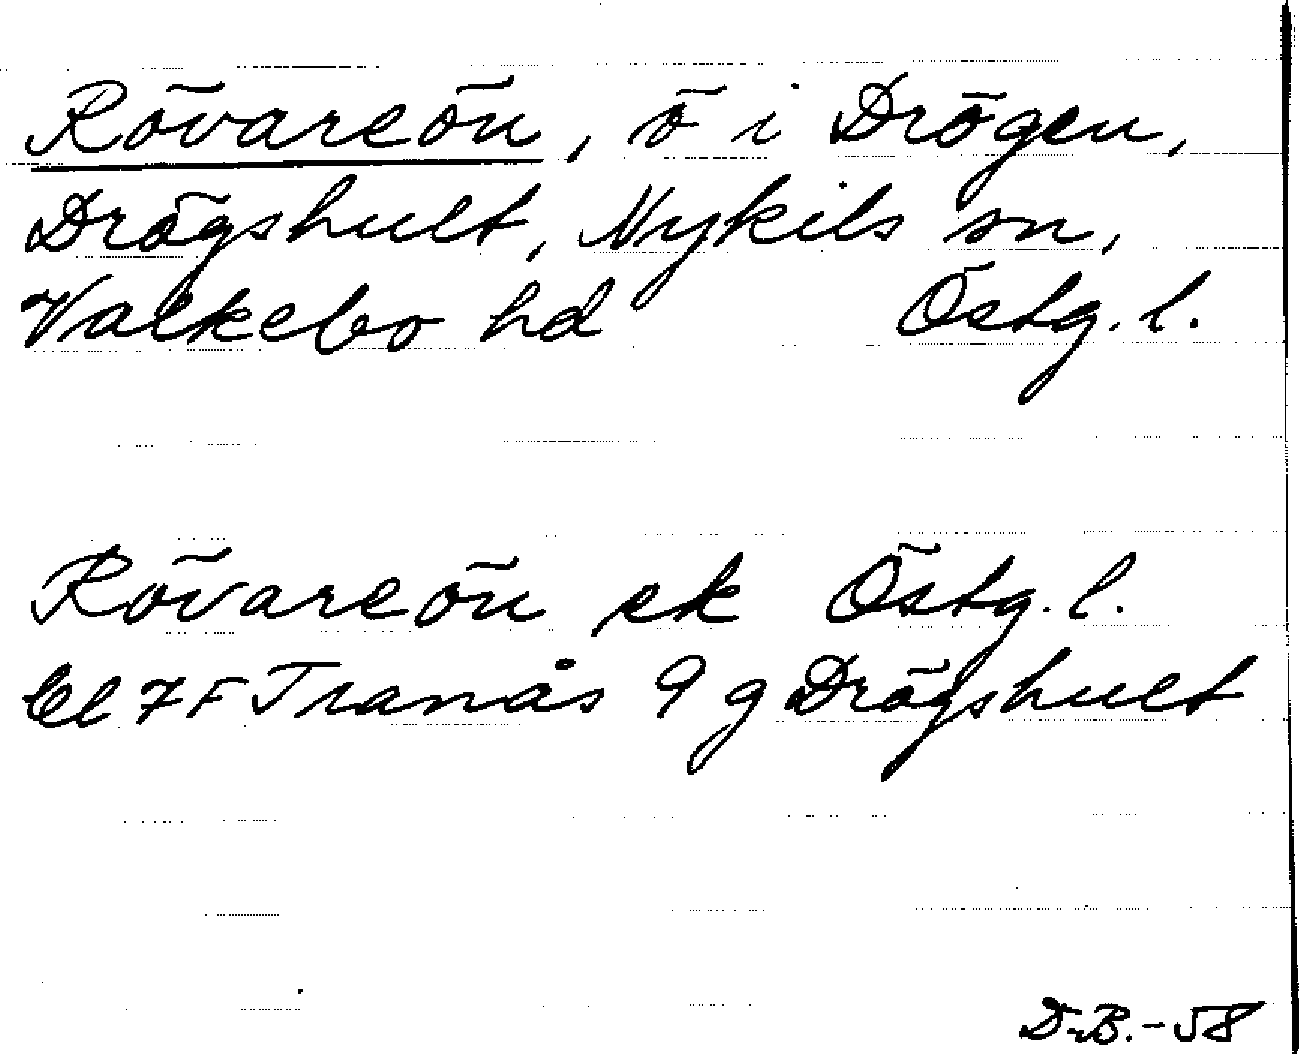 Rövareön, ö i Drögen,
Drögshult, Nykils sn,
Valkebo hd Östg. l.
Rövareön ek Östg. l.
bl 7F Tranås 9 g Drögshult
D-B.-58